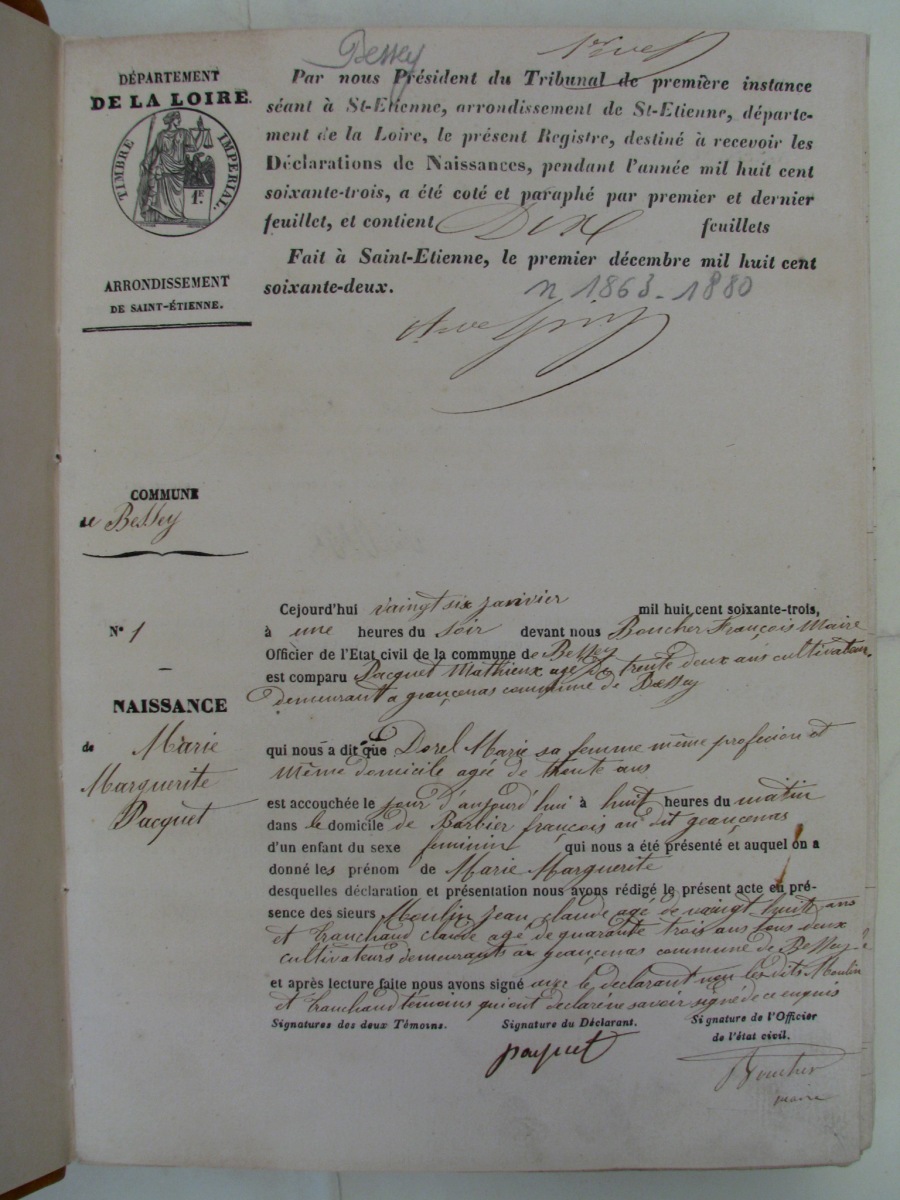 Bessey
1er
DÉPARTEMENT
DE LA LOIRE.
TIMBRE IMPÉRIAL.
1E.
ARRONDISSEMENT
DE SAINT-ÉTIENNE.
Par nous Président du Tribunal de première instance
séant à St-Etienne, arrondissement de St-Etienne, départe-
ment de la Loire, le présent Registre, destiné à recevoir les
Déclarations de Naissances, pendant l'année mil huit cent
soixante-trois, a été coté et paraphé par premier et dernier
feuillet, et contient Dix feuillets
Fait à Saint-Etienne, le premier décembre mil huit cent
soixante-deux.
n 1863-1880
COMMUNE
de Bessey
N° 1
NAISSANCE
de Marie
Marguerite
Pacquet
Cejourd'hui vaingt six janvier mil huit cent soixante-trois,
à une heures du soir devant nous Boucher François Maire
Officier de l'Etat civil de la commune de Bessey
est comparu Pacquet Mathieux agé de trente deux ans cultivateur
demeurant a geançenas commune de Bessey
qui nous a dit que Dorel Marie sa femme même profecion et
même domicile agée de trente ans
est accouchée le jour d'aujourd'hui à huit heures du matin
dans le domicile de Barbier françois au dit geançenas
d'un enfant du sexe feminin qui nous a été présenté et auquel on a
donné les prénom de Marie Marguerite
desquelles déclaration et présentation nous avons rédigé le présent acte en pré-
sence des sieurs Moulin jean claude agé de vaingt huite ans
et tranchand claude agé de quarante trois ans tous deux
cultivateurs demeurants a geançenas commune de Bessey
et après lecture faite nous avons signé avec le declarant non les dits Moulin
et tranchand témoins qui ont declaré ne savoir signé de ce enquis
Signatures des deux Témoins. Signature du Déclarant. Signature de l'Officier
de l'état civil.
paquet
Boucher
maire